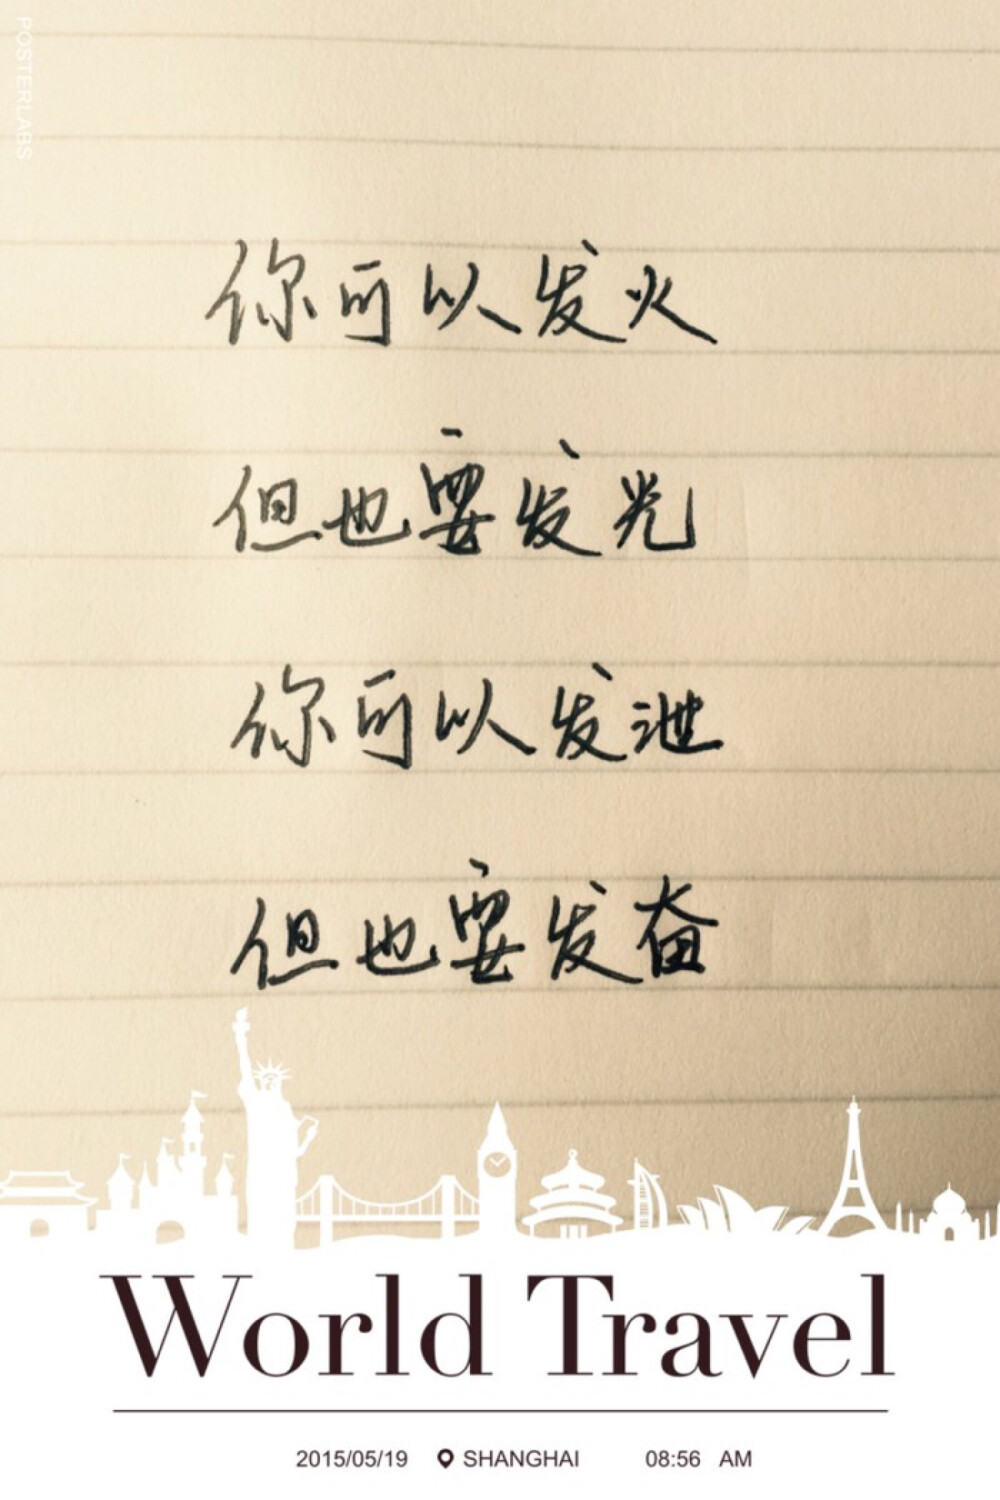 POSTERLABS
你可以发火
但也要发光
你可以发泄
但也要发奋
World Travel
2015/05/19 SHANGHAI 08:56 AM